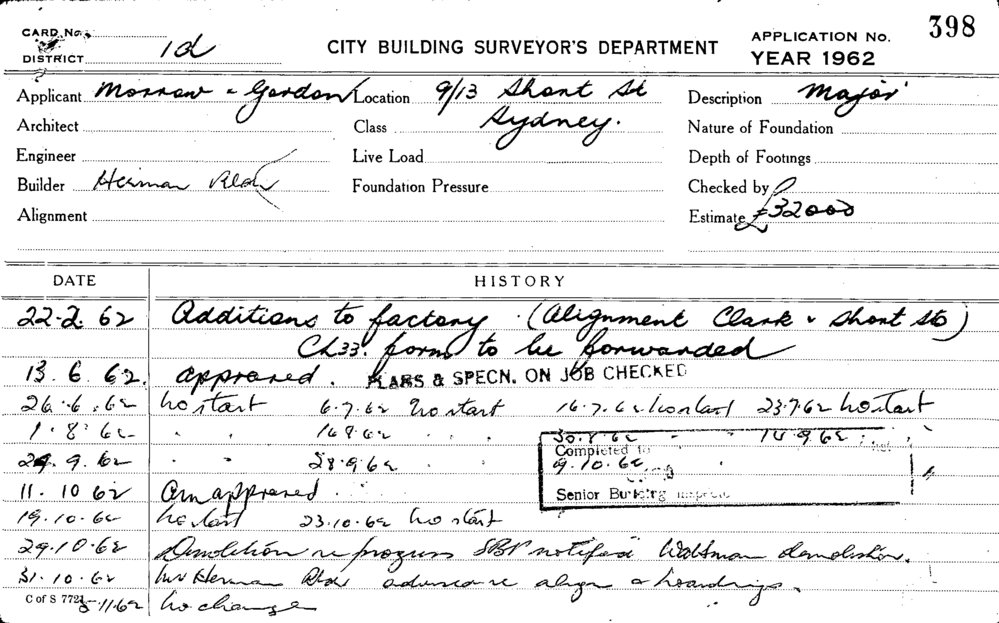 CARD No. 398
DISTRICT 1d
CITY BUILDING SURVEYOR'S DEPARTMENT
APPLICATION No.
YEAR 1962
Applicant Morrow & Gordon Location 9/13 Shont St Description Major
Architect Class Sydney. Nature of Foundation
Engineer Live Load Depth of Footings
Builder Herman Foundation Pressure Checked by
Alignment Estimate £32000
DATE HISTORY
22-2. 62 Additions to factory (Alignment Clark & Shont Sts)
Ch33. form to be forwarded
13. 6. 62. approved. PLANS & SPECN. ON JOB CHECKED
26.6.62 No start 6.7.62 No start 16.7.62 No start 23.7.62 No start
1.8.62 " " 14.9.62
9.62 " " 28.9.62 " "
Completed to
9.10.62
Senior Building
11. 10 62 Am approved
19.10.62 No start 23.10.62 No start
29.10.62 Demolition in progress notified demolition.
31.10.62 Mr Herman align & hoardings.
C of S 772 11.62 No change